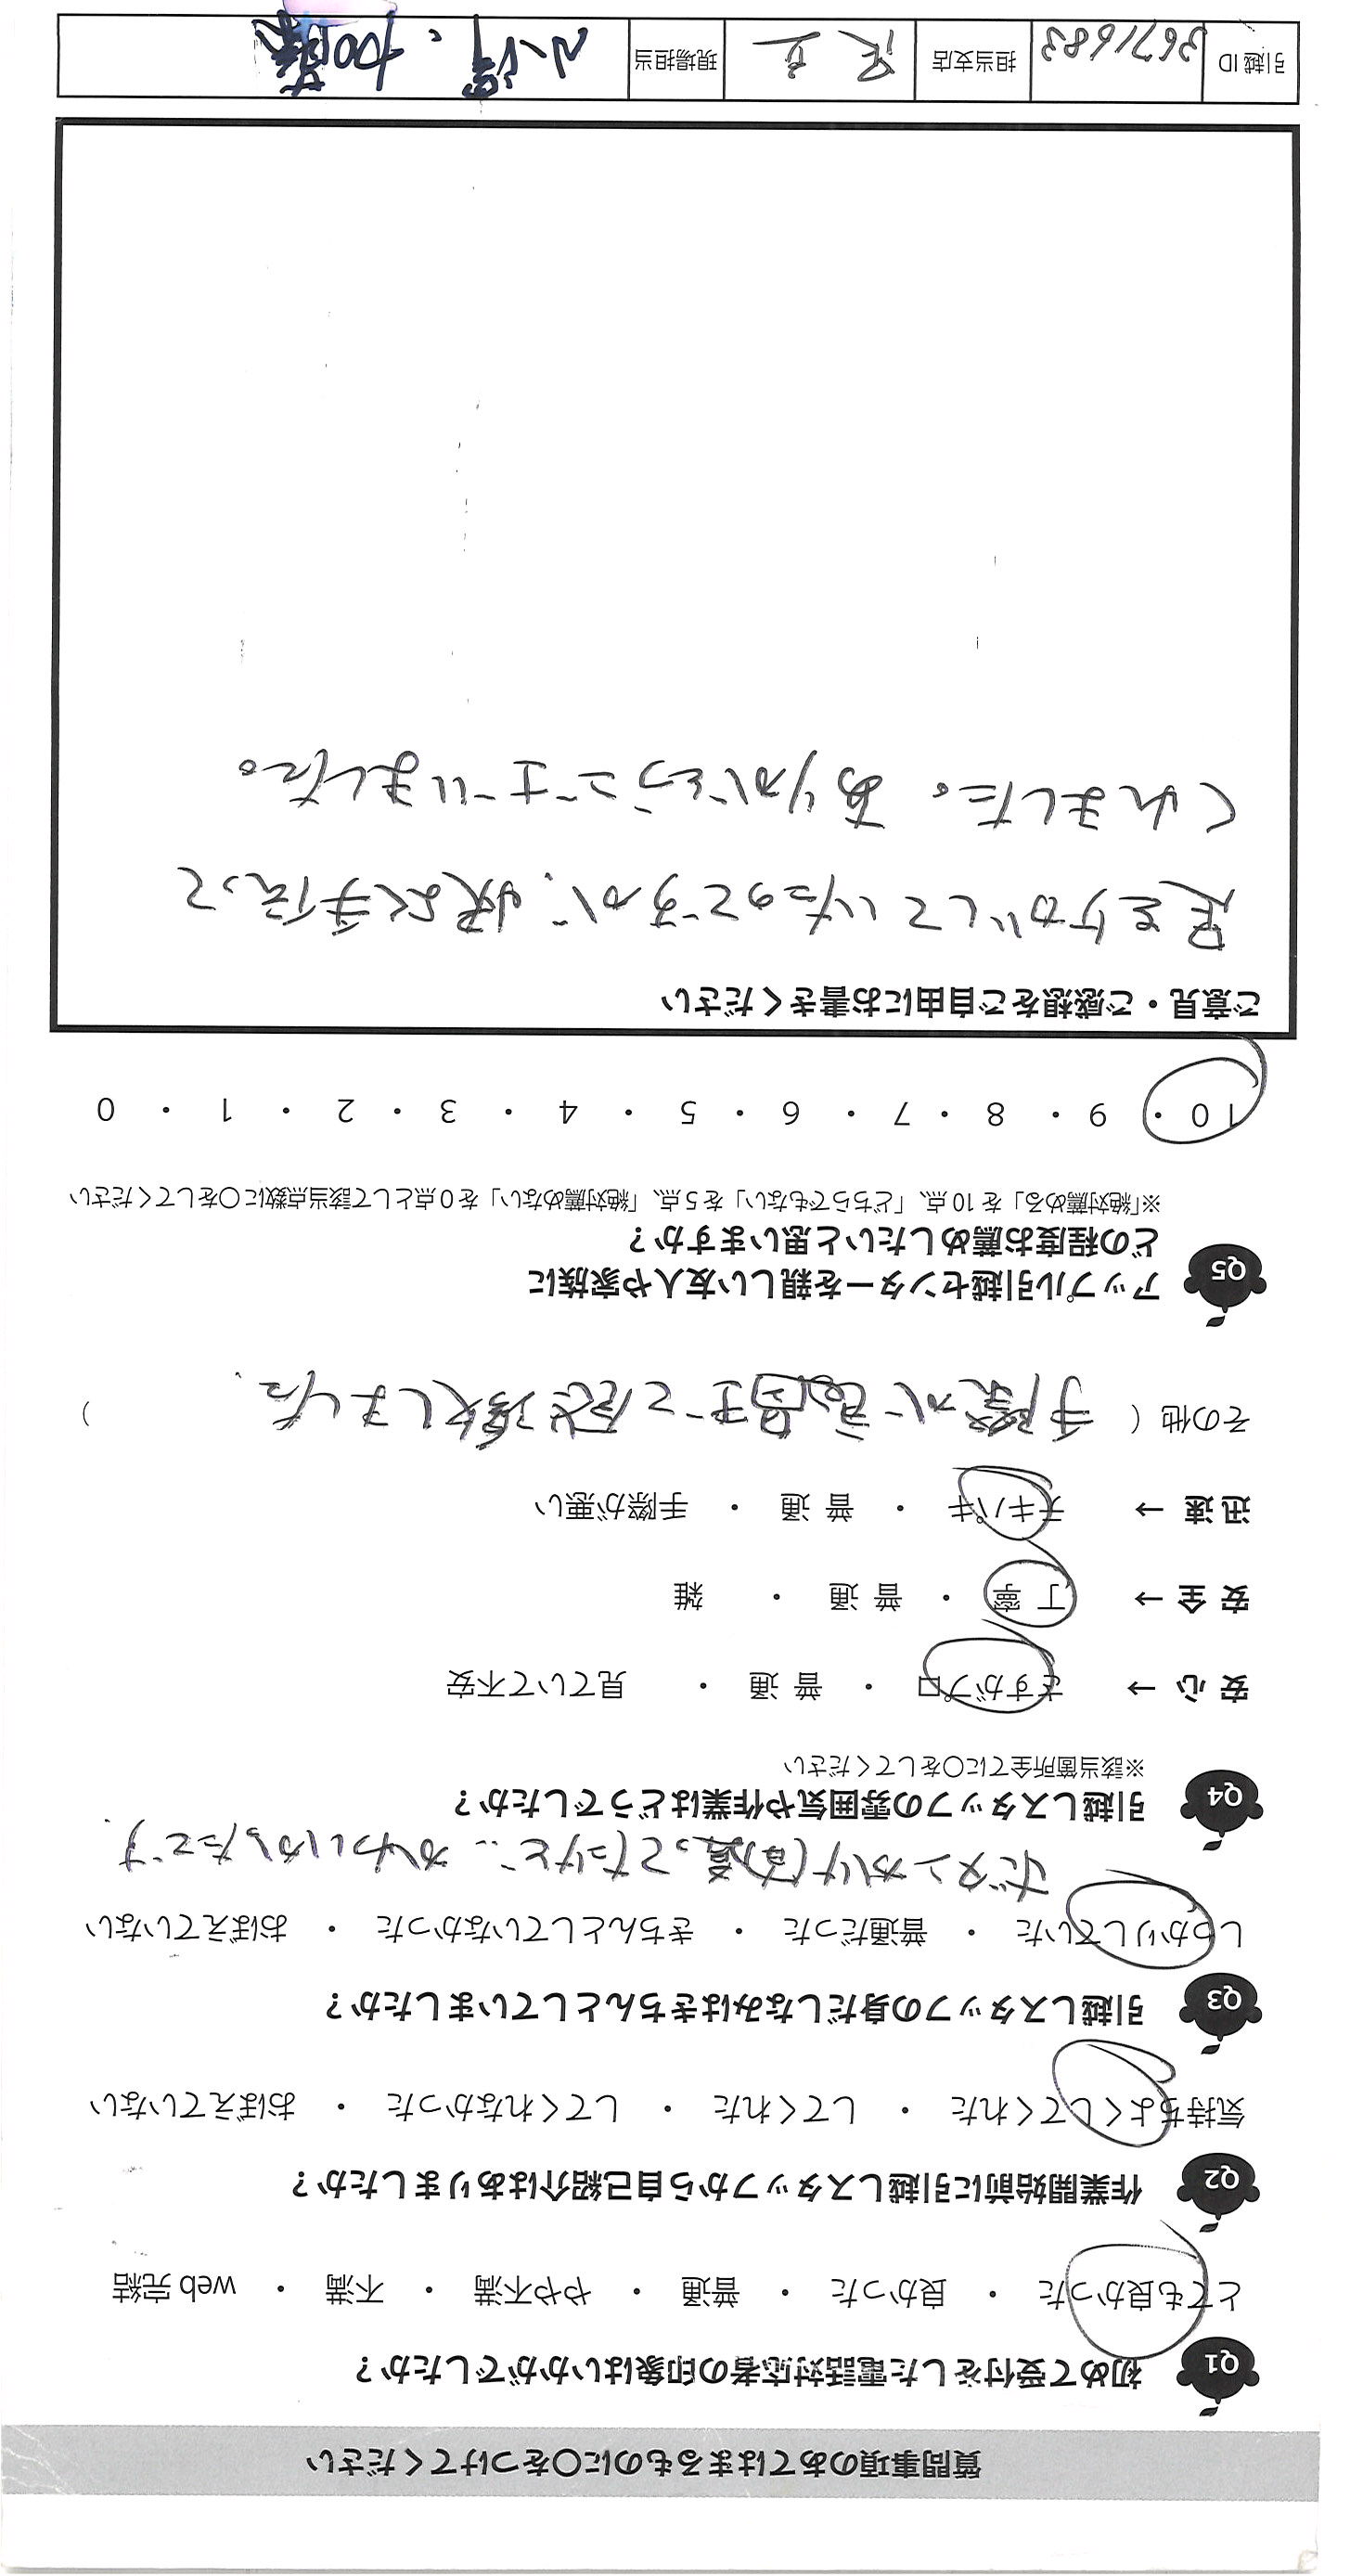 質問事項のあてはまるものに〇をつけてください
Q1 初めて受付をした電話対応者の印象はいかがでしたか？
とても良かった ・ 良かった ・ 普通 ・ やや不満 ・ 不満 ・ web 完結
Q2 作業開始前に引越しスタッフから自己紹介はありましたか？
気持ちよくしてくれた ・ してくれた ・ してくれなかった ・ おぼえていない
Q3 引越しスタッフの身だしなみはきちんとしていましたか？
しっかりしていた ・ 普通だった ・ きちんとしていなかった ・ おぼえていない
ボタンかけ間違ってたけど… かわいかったです.
Q4 引越しスタッフの雰囲気や作業はどうでしたか？
※該当箇所全てに〇をしてください
安 心 → さすがプロ ・ 普 通 ・ 見ていて不安
安 全 → 丁 寧 ・ 普 通 ・ 雑
迅 速 → テキパキ ・ 普 通 ・ 手際が悪い
その他 ( 手際が良すぎて感激しました. )
Q5 アップル引越センターを親しい友人や家族に
どの程度お薦めしたいと思いますか？
※「絶対薦める」を 10 点、「どちらでもない」を 5 点、「絶対薦めない」を 0 点として該当点数に〇をしてください
10 ・ 9 ・ 8 ・ 7 ・ 6 ・ 5 ・ 4 ・ 3 ・ 2 ・ 1 ・ 0
ご意見・ご感想をご自由にお書きください
足をケガしていたのですが、快よく手伝って
くれました。ありがとうございました。
引越 ID 3671683 担当支店 足立 現場担当 小澤、加藤